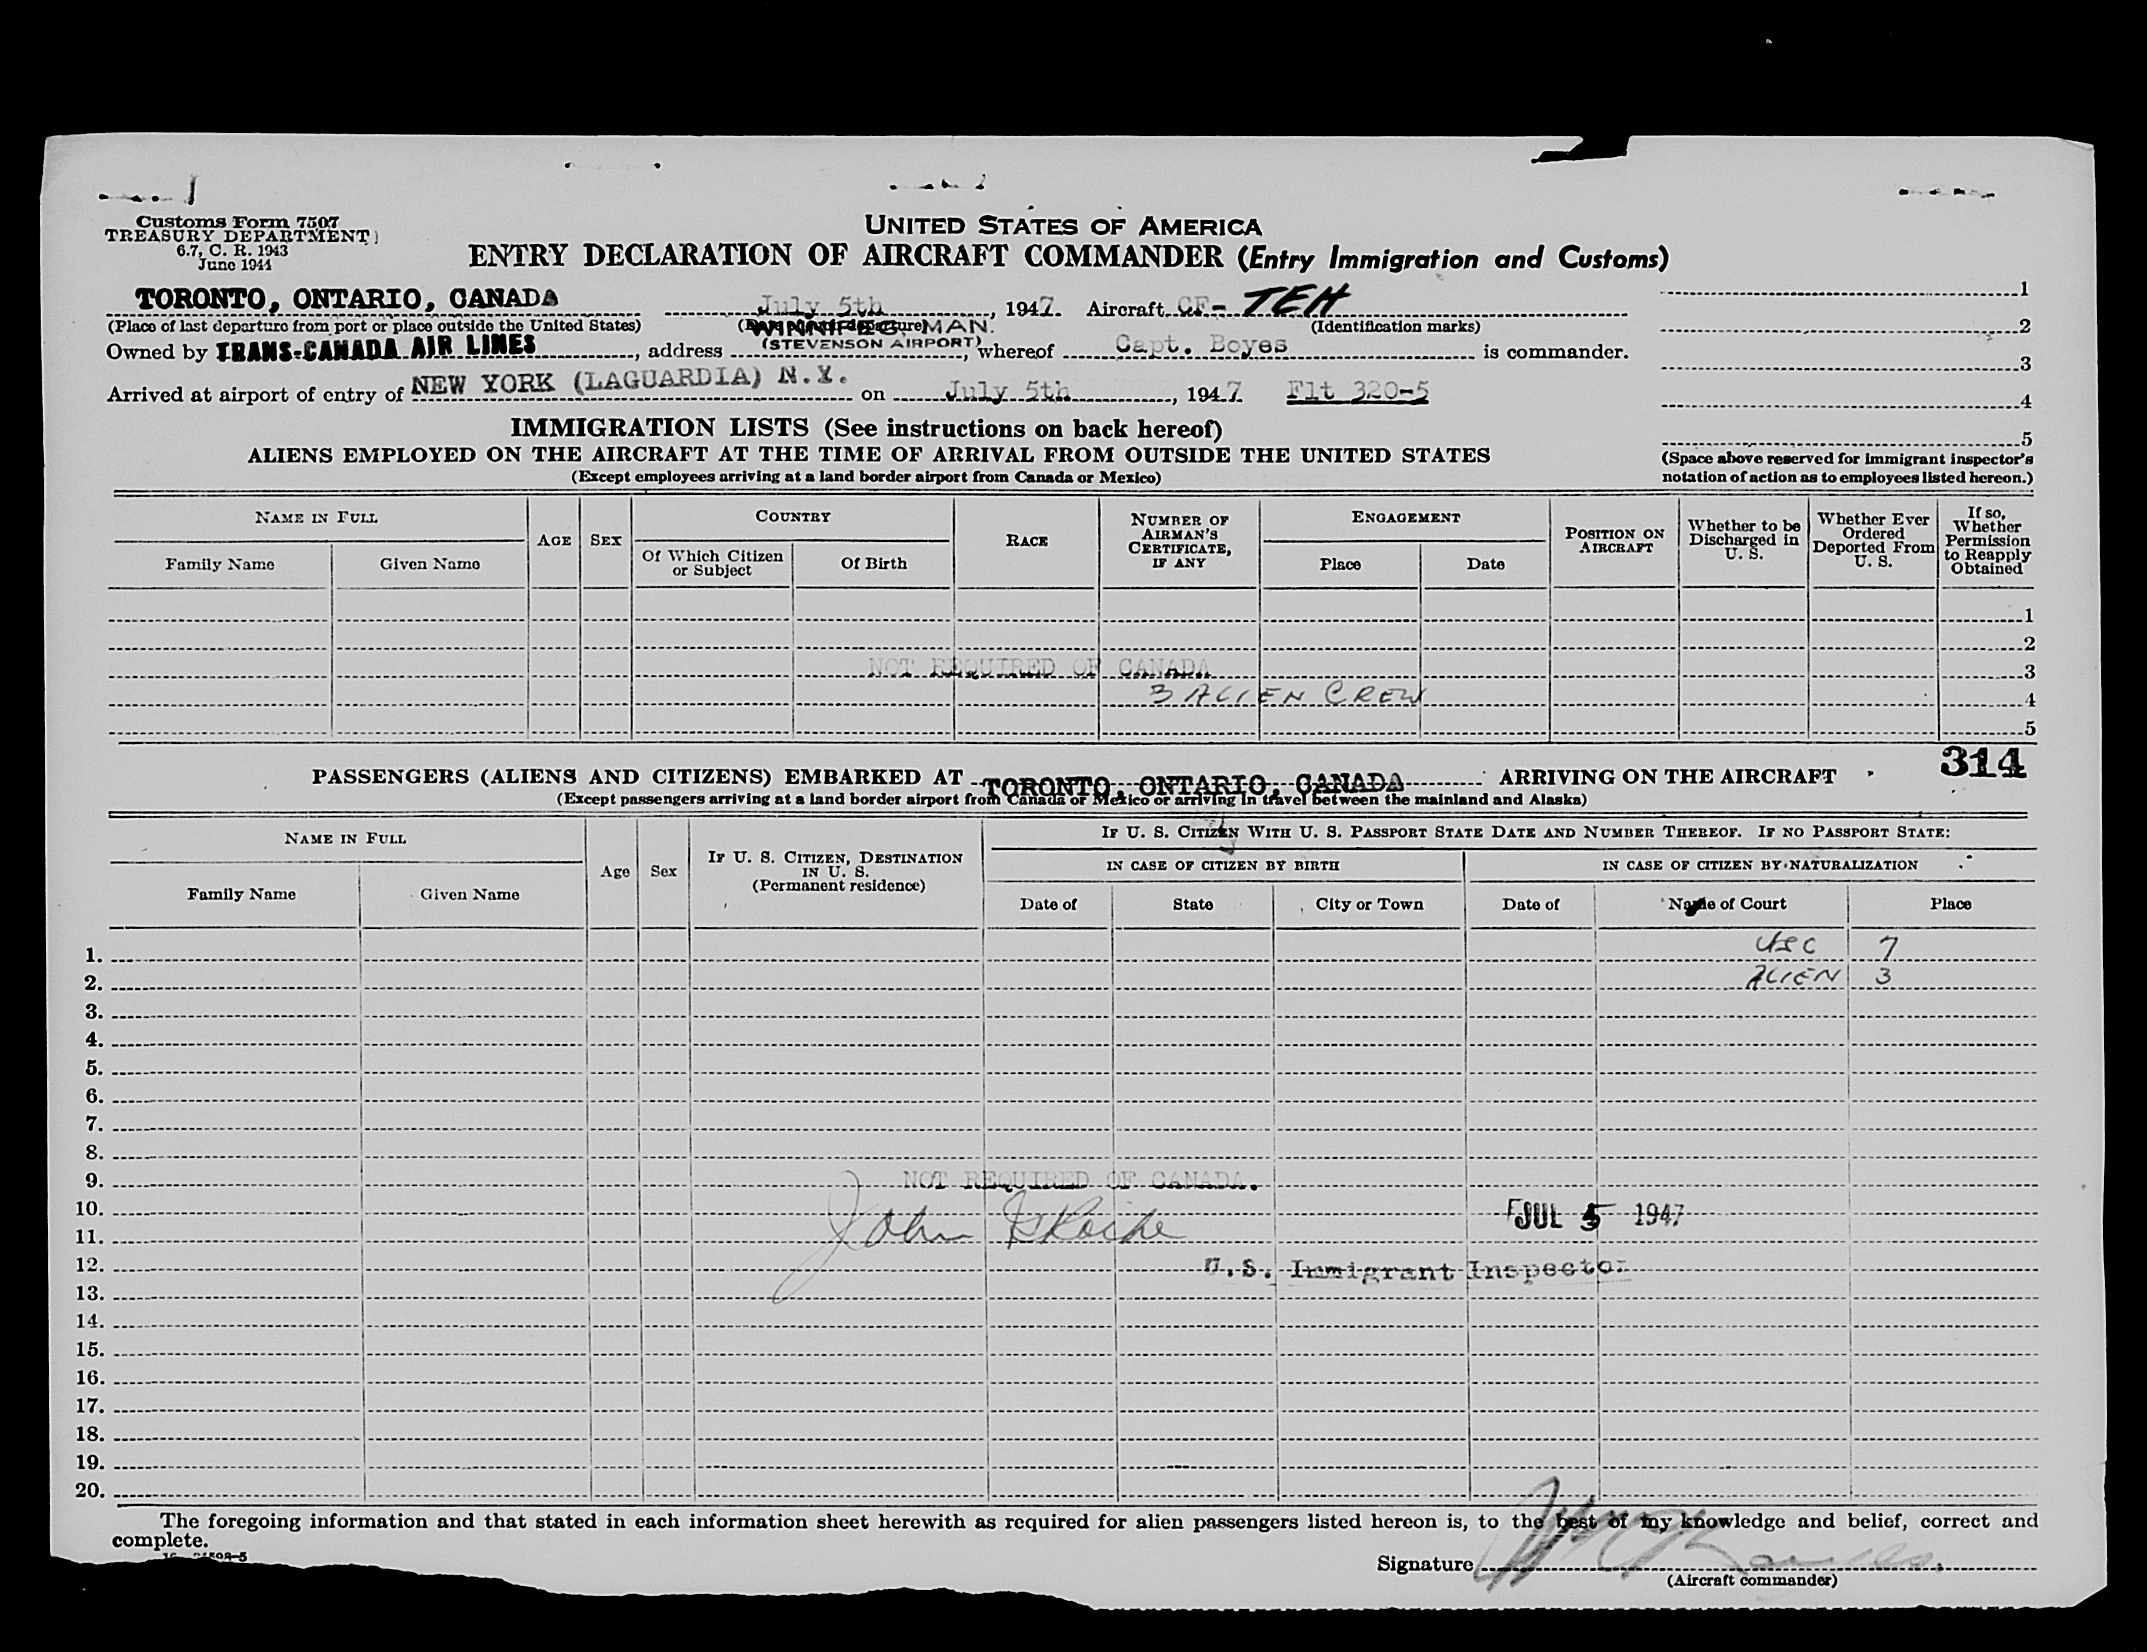 Customs Form 7507
TREASURY DEPARTMENT
6.7, C. R. 1943
June 1944
UNITED STATES OF AMERICA
ENTRY DECLARATION OF AIRCRAFT COMMANDER (Entry Immigration and Customs)
TORONTO, ONTARIO, CANADA July 5th, 1947. Aircraft CF-TEH
(Place of last departure from port or place outside the United States) (Identification marks)
WINNIPEG, MAN.
(STEVENSON AIRPORT)
Owned by TRANS-CANADA AIR LINES, address , whereof Capt. Boyes is commander.
Arrived at airport of entry of NEW YORK (LAGUARDIA) N.Y. on July 5th, 1947 Flt 320-5
1
2
3
4
5
(Space above reserved for immigrant inspector's
notation of action as to employees listed hereon.)
IMMIGRATION LISTS (See instructions on back hereof)
ALIENS EMPLOYED ON THE AIRCRAFT AT THE TIME OF ARRIVAL FROM OUTSIDE THE UNITED STATES
(Except employees arriving at a land border airport from Canada or Mexico)
NAME IN FULL
Family Name
Given Name
AGE
SEX
COUNTRY
Of Which Citizen
or Subject
Of Birth
RACE
NUMBER OF
AIRMAN'S
CERTIFICATE,
IF ANY
ENGAGEMENT
Place
Date
POSITION ON
AIRCRAFT
Whether to be
Discharged in
U. S.
Whether Ever
Ordered
Deported From
U. S.
If so,
Whether
Permission
to Reapply
Obtained
1
2
NOT REQUIRED OF CANADA 3
3 ALIEN CREW 4
5
314
PASSENGERS (ALIENS AND CITIZENS) EMBARKED AT TORONTO, ONTARIO, CANADA ARRIVING ON THE AIRCRAFT
(Except passengers arriving at a land border airport from Canada or Mexico or arriving in travel between the mainland and Alaska)
NAME IN FULL
Family Name
Given Name
Age
Sex
IF U. S. CITIZEN, DESTINATION
IN U. S.
(Permanent residence)
IF U. S. CITIZEN WITH U. S. PASSPORT STATE DATE AND NUMBER THEREOF. IF NO PASSPORT STATE:
IN CASE OF CITIZEN BY BIRTH
Date of
State
City or Town
IN CASE OF CITIZEN BY NATURALIZATION
Date of
Name of Court
Place
1. USC 7
2. ALIEN 3
3.
4.
5.
6.
7.
8.
9. NOT REQUIRED OF CANADA.
10. JUL 5 1947
11. John
12. U.S. Immigrant Inspector
13.
14.
15.
16.
17.
18.
19.
20.
The foregoing information and that stated in each information sheet herewith as required for alien passengers listed hereon is, to the best of my knowledge and belief, correct and
complete.
Signature
(Aircraft commander)